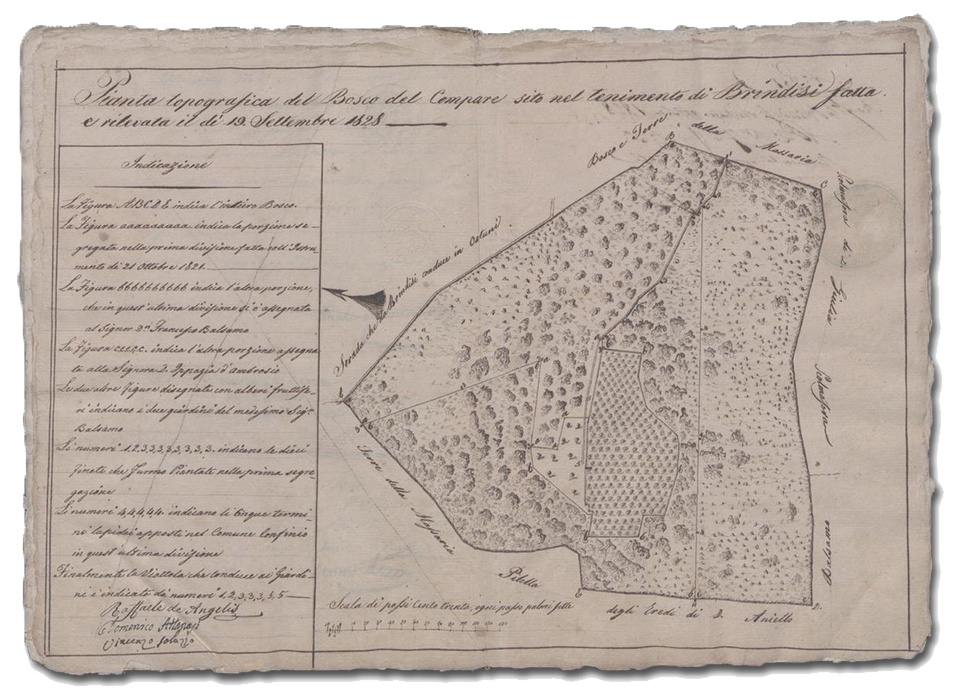 Pianta topografica del Bosco del Compare sito nel tenimento di Brindisi fatta
e rilevata il di 19 Settembre 1828
Indicazione
La Figura A.B.C.D.E. indica l'intiero Bosco.
La Figura aaaaaaaaa. indica la porzione se-
gregata nella prima divisione fatta coll'Istru-
mento di 21 Ottobre 1821.
La Figura bbbbbbbbbb indica l'altra porzione,
che in quest'ultima divisione si è assegnata
al Signor Dn Francesco Balsamo
La Figura c.c.c.c. indica l'altra porzione assegna-
ta alla Signora D. Oppazia d'Ambrosio
Le due altre figure disegnate con alberi fruttife-
ri indicano i due giardini del medesimo Sigr
Balsamo
Li numeri 1.2.3.3.3.3.3.3.3. indicano le dieci
finete de Jurmo Piantate nella prima segre-
gazione
Li numeri 4.4.4.4.4. indicano li cinque termi-
ni lapidei apposti nel Comune Confinio
in quest'ultima divisione
Finalmente la Viottola che conduce ai Giardi-
ni è indicata da' numeri 1.2.3.3.3.5
Raffaele de Angelis
Domenico
Vincenzo
Strada che da Brindisi conduce in Ostuni
Bosco e Terre della Massaria
Palmafora di D. Giulia Palmafora
Terre della Massaria
Pilella
degli Eredi di D. Aniello
Scala di passi Cento trenta, ogni passo palmi sette